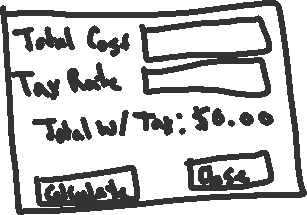 Total Cost
Tax Rate
Total w/ Tax: $0.00
Calculate Close